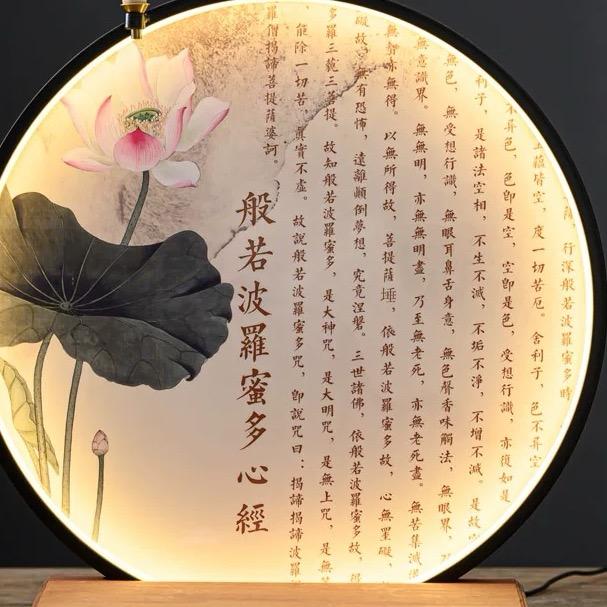 薩，行深般若波羅蜜多時
蘊皆空，度一切苦厄。舍利子，色不异空
不异色，色即是空，空即是色，受想行識，亦復如是
利子，是諸法空相，不生不滅，不垢不淨，不增不減。是故空
無色，無受想行識，無眼耳鼻舌身意，無色聲香味觸法，無眼界，
無意識界。無無明，亦無無明盡，乃至無老死，亦無老死盡。無苦集滅
無智亦無得。以無所得故，菩提薩埵，依般若波羅蜜多故，心無罣礙，
礙故，無有恐怖，遠離顛倒夢想，究竟涅磐。三世諸佛，依般若波羅蜜多故，得
多羅三藐三菩提。故知般若波羅蜜多，是大神咒，是大明咒，是無上咒，是無
能除一切苦，真實不虛。故說般若波羅蜜多咒，即說咒曰：揭諦揭諦波羅
羅僧揭諦菩提薩婆訶。
般若波羅蜜多心經